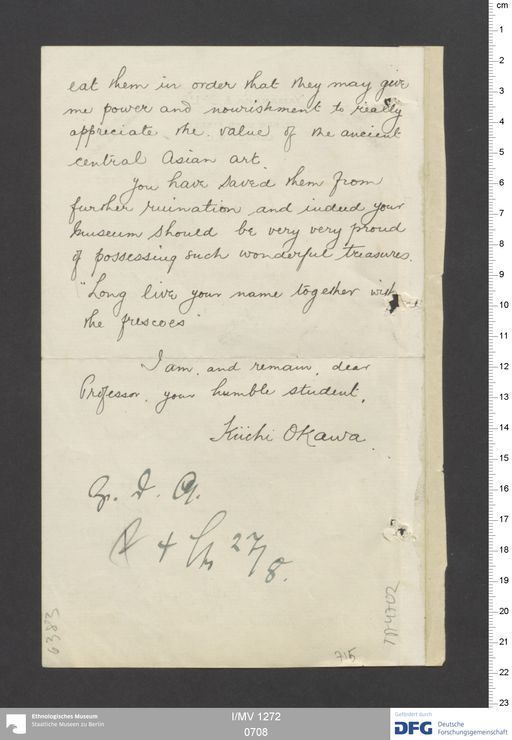 eat them in order that they may give
me power and nourishment to really
appreciate the value of the ancient
central Asian art.
You have saved them from
further ruination and indeed your
Museum should be very very proud
of possessing such wonderful treasures.
"Long live your name together with
the frescoes"
I am, and remain, dear
Professor, your humble student,
Kiichi Okawa.
27/8.
6383
715
cm
1
2
3
4
5
6
7
8
9
10
11
12
13
14
15
16
17
18
19
20
21
22
23
Ethnologisches Museum
Staatliche Museen zu Berlin
I/MV 1272
0708
Gefördert durch
DFG Deutsche
Forschungsgemeinschaft